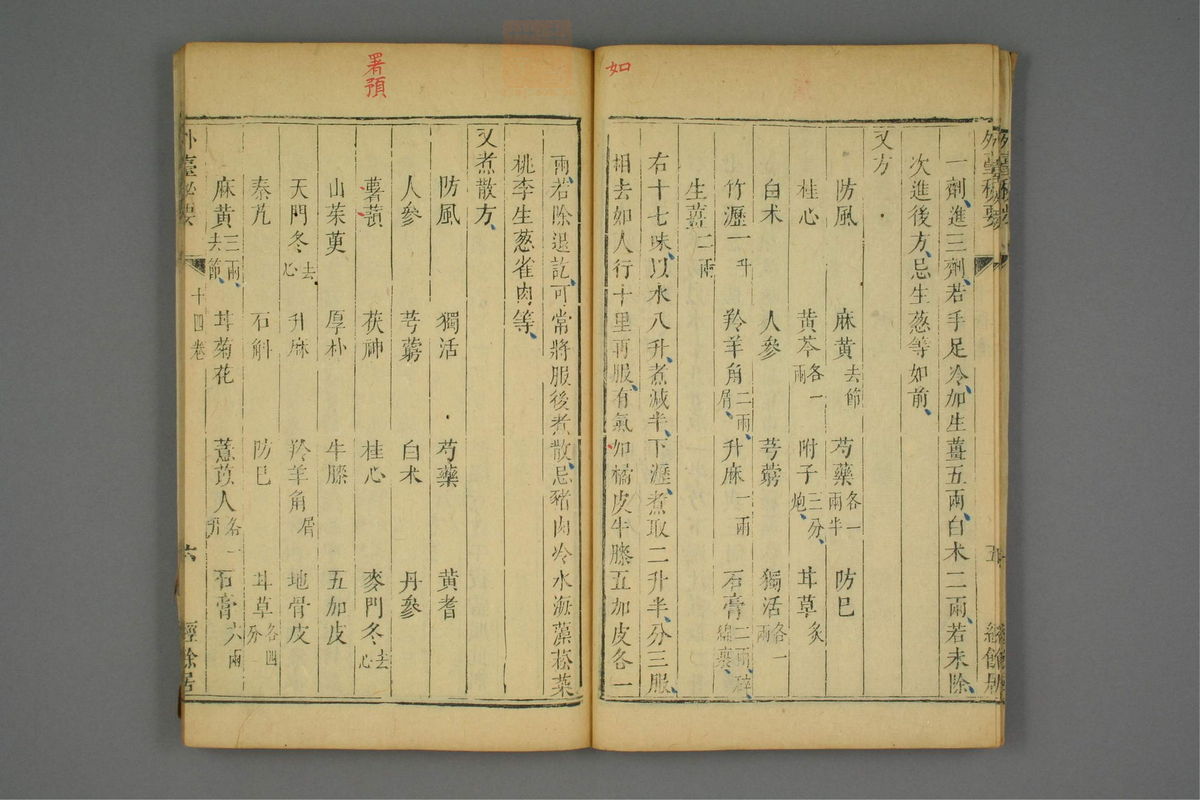 如
外臺秘要
五
經餘居
一劑、進三劑、若手足冷、加生薑五兩、白朮二兩、若未除、
次進後方、忌生葱等如前、
又方
防風 麻黃去節 芍藥各一兩半 防巳
桂心 黃芩各一兩 附子三分、炮、 甘草炙
白术 人參 芎藭 獨活各一兩
竹瀝一升 羚羊角二兩、屑、 升麻一兩 石膏二兩、碎、綿裹、
生薑二兩
右十七味、以水八升、煮減半、下瀝、煮取二升半、分三服、
相去如人行十里再服、有氣加橘皮牛膝五加皮各一
署預
兩、若除退訖、可常將服後煮散、忌豬肉冷水海藻菘菜
桃李生葱雀肉等、
又煮散方、
防風 獨活 芍藥 黃耆
人參 芎藭 白术 丹參
薯蕷 茯神 桂心 麥門冬去心
山茱萸 厚朴 牛膝 五加皮
天門冬去心 升麻 羚羊角屑 地骨皮
秦艽 石斛 防巳 甘草各四分
麻黃三兩、去節、 甘菊花 薏苡人各一升 石膏六兩
外臺秘要
十四卷
六
經餘居